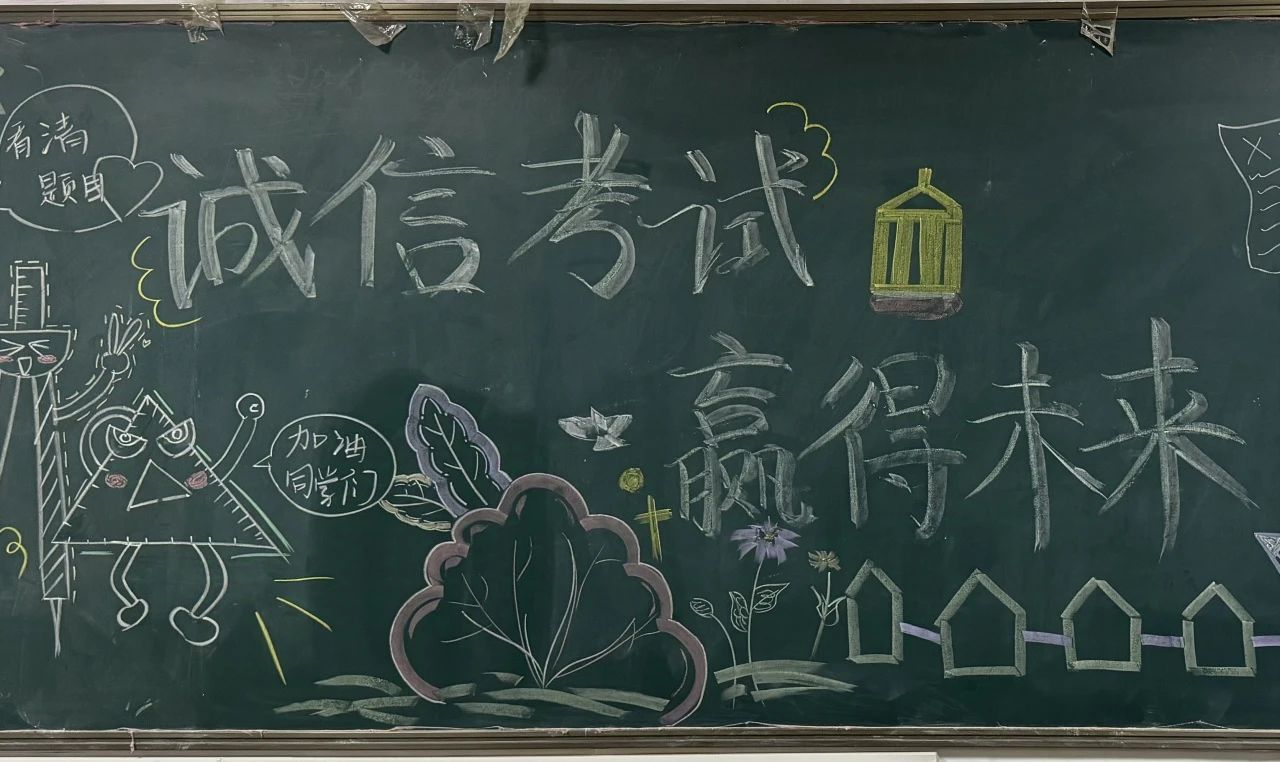 看清
题目
诚信考试
赢得未来
加油
同学们